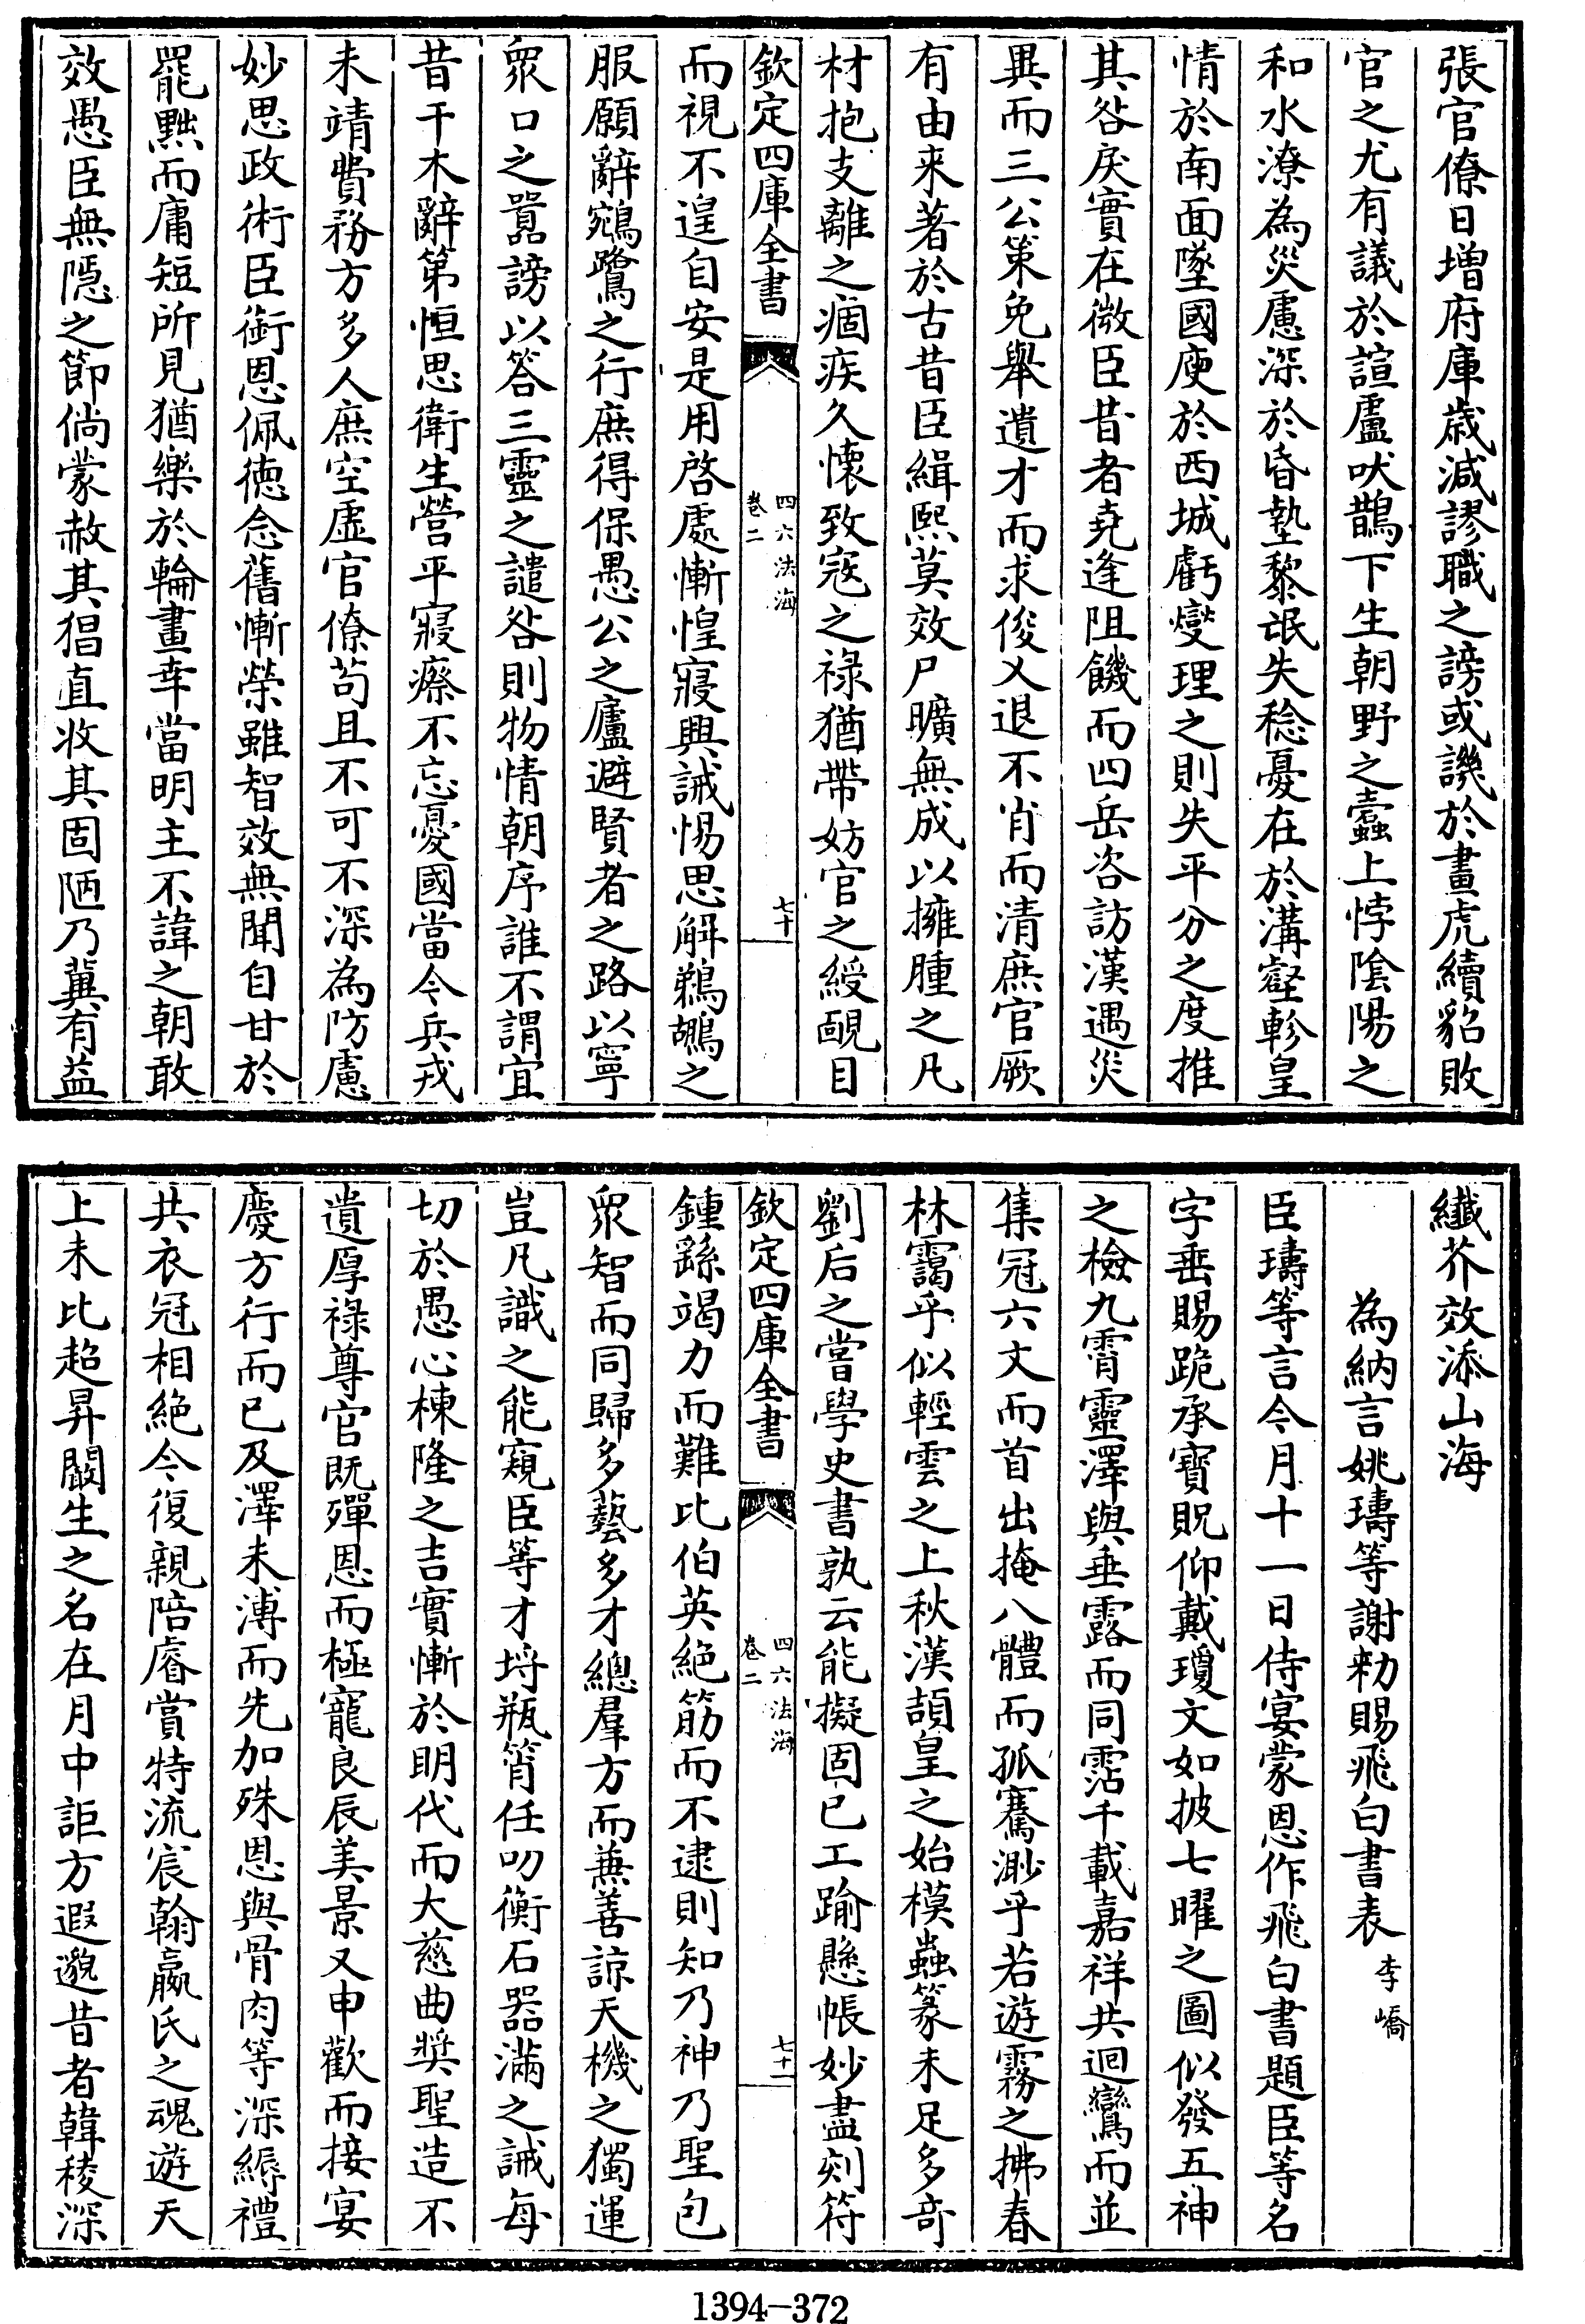 張官僚日增府庫歲減謬職之謗或譏於畫虎續貂敗
官之尤有議於諠盧吠鵲下生朝野之蠧上悖隂陽之
和水潦為災慮深於昏墊黎氓失稔憂在於溝壑軫皇
情於南面墜國庾於西城虧燮理之則失平分之度推
其咎戾實在微臣昔者堯逢阻饑而四岳咨訪漢遇災
異而三公策免舉遺才而求俊乂退不肖而清庶官厥
有由來著於古昔臣緝熙莫效尸曠無成以擁腫之凡
材抱支離之痼疾久懷致寇之祿猶帶妨官之綬靦目
欽定四庫全書
四六法海
卷二
七十
而視不遑自安是用啓處慚惶寢興誡惕思解鵜鶘之
服願辭鵷鷺之行庶得保愚公之廬避賢者之路以寧
眾口之囂謗以答三靈之譴咎則物情朝序誰不謂宜
昔干木辭第恒思衛生營平寢瘵不忘憂國當今兵戎
未靖費務方多人庶空虛官僚苟且不可不深為防慮
妙思政術臣銜恩佩德念舊慚榮雖智效無聞自甘於
罷黜而庸短所見猶樂於輪畫幸當明主不諱之朝敢
效愚臣無隱之節倘蒙赦其猖直收其固陋乃冀有益
纖芥效添山海
為納言姚璹等謝勑賜飛白書表 李嶠
臣璹等言今月十一日侍宴蒙恩作飛白書題臣等名
字垂賜跪承寶貺仰戴瓊文如披七曜之圖似發五神
之檢九霄靈澤與垂露而同霑千載嘉祥共迴鸞而並
集冠六文而首出掩八體而孤騫渺乎若遊霧之拂春
林靄乎似輕雲之上秋漢頡皇之始模蟲篆未足多奇
劉后之嘗學史書孰云能擬固已工踰懸帳妙盡剡符
欽定四庫全書
四六法海
卷二
七十一
鍾繇竭力而難比伯英絕筋而不逮則知乃神乃聖包
眾智而同歸多藝多才總羣方而兼善諒天機之獨運
豈凡識之能窺臣等才埒瓶筲任叨衡石器滿之誡每
切於愚心棟隆之吉實慚於明代而大慈曲奬聖造不
遺厚祿尊官既殫恩而極寵良辰美景又申歡而接宴
慶方行而已及澤未溥而先加殊恩與骨肉等深縟禮
共衣冠相絕今復親陪睿賞特流宸翰嬴氏之魂遊天
上未比超昇闞生之名在月中詎方遐邈昔者韓稜深
1394-372